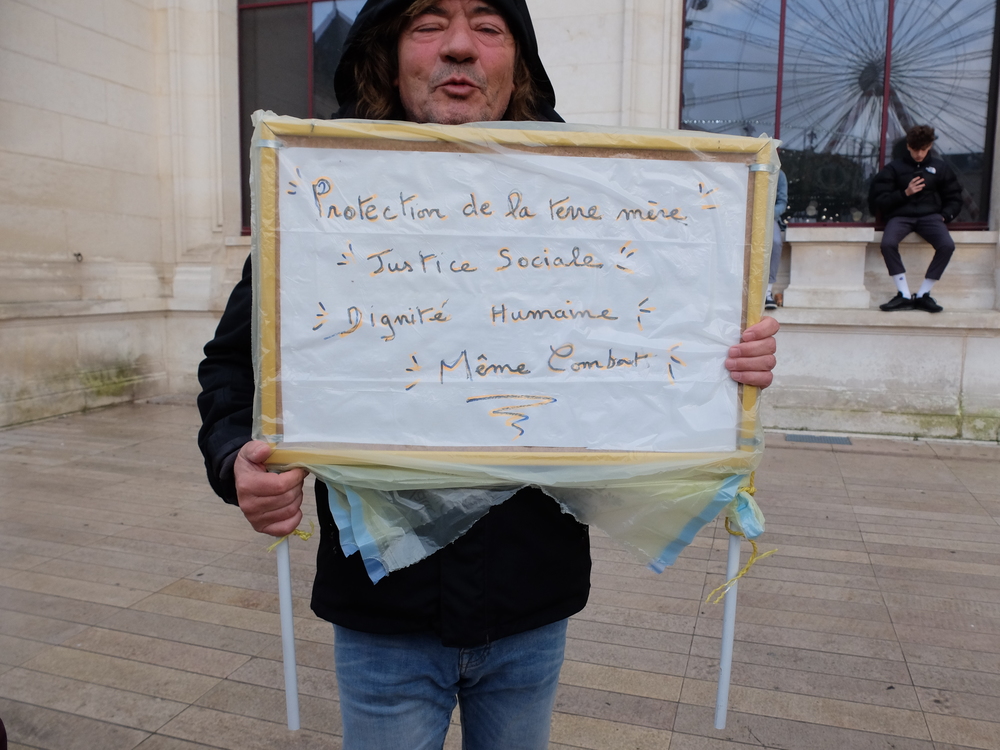 Protection de la terre mère
Justice Sociale
Dignité Humaine
Même Combat